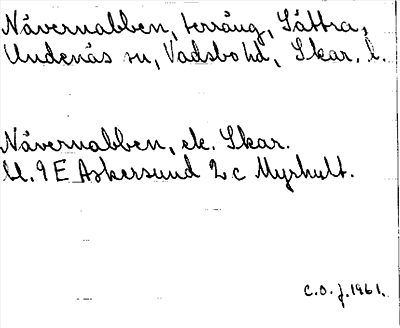 Nävernabben, terräng, Sättra,
Undenäs sn, Vadsbo hd, Skar. l.
Nävernabben, ek. Skar.
bl. 9 E Askersund 2 c Myrhult.
C.O.J. 1961.